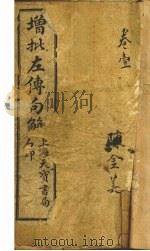 增批左傳句解
上海天寶書局
石印
卷壹